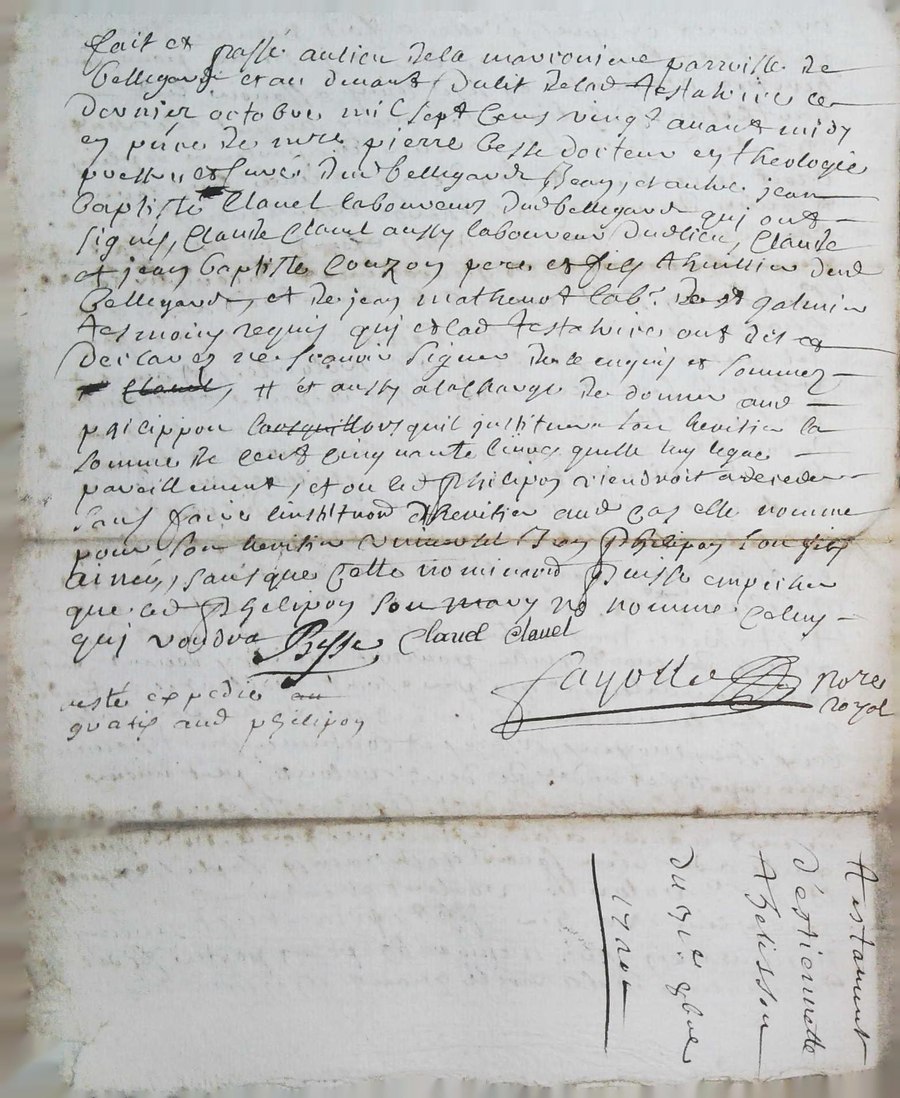 fait et passé au lieu de la marionière parroisse de
bellegarde et au devant du lit de lad testatrice ce
dernier octobre mil sept cens vingt avant midy
en pnce de mre pierre besse docteur en theologie
prestre et curé dud bellegarde Beau, et autre jean
baptiste Clavel laboureurs dud bellegarde qui ont
signés, Claude Clavel aussy laboureur dud lieu, Claude
et jean baptiste Couzon pere et fils thuillier dud
Bellegarde, et de jean mathevot labr. de st galmier
tesmoins requis qui et lad testatrice ont dit et
declarés ne sçavoir signer de ce enquis et sommez
Clavel, # et aussy a la charge de donner aud
philippon lors quil justituera son heritier la
somme de cent cinquante livres quelle luy legue
pareillement, et ou led Philipon viendroit a deceder
sans faire linstituon dheritier aud cas elle nomme
pour son heritier universel Jean Philipon son fils
ainé, sans que cette nominaon Puisse empecher
que led Philipon son mary ne nomme Celuy
qui voudra Besse Claud Clavel
Fayolle nore
royal
esté expedié
gratis aud philipon
testament
d'estiennette
thelisson
du 31e 8bre
1720